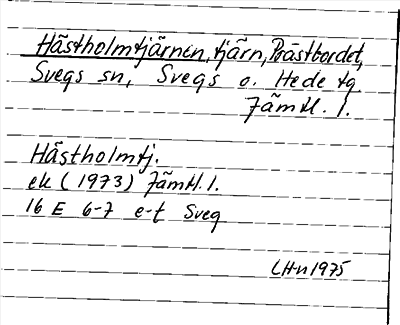 Hästholmtjärnen, tjärn, Prästbordet,
Svegs sn, Svegs o. Hede tg
Jämtl. l.
Hästholmtj.
ek (1973) Jämtl. l.
16 E 6-7 e-f Sveg
LHn 1975